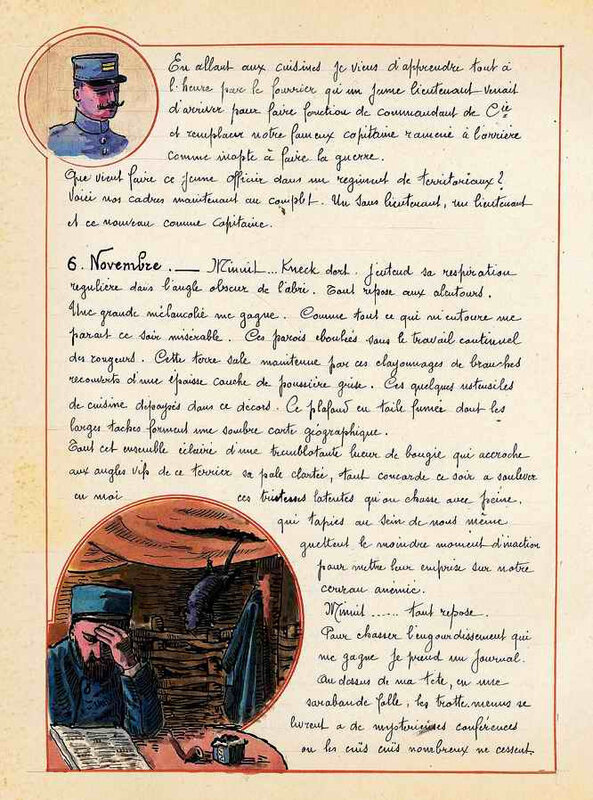 En allant aux cuisines je viens d'apprendre tout à
l'heure par le fourrier qu'un jeune lieutenant venait
d'arriver pour faire fonction de commandant de Cie
et remplacer notre fameux capitaine ramené à l'arrière
comme inapte à faire la guerre.
Que vient faire ce jeune officier dans un régiment de territoriaux?
Voici nos cadres maintenant au complet. Un sous lieutenant, un lieutenant
et ce nouveau comme capitaine.
6. Novembre. — Minuit... Kneck dort. J'entend sa respiration
regulière dans l'angle obscur de l'abri. Tout repose aux alentours.
Une grande mélancolie me gagne. Comme tout ce qui m'entoure me
parait ce soir misérable. Ces parois eboulées sous le travail continuel
des rongeurs. Cette terre sale maintenue par ces clayonnages de branches
recouverts d'une épaisse couche de poussière grise. Ces quelques ustensiles
de cuisine depaysés dans ce décors. Ce plafond en toile fumée dont les
larges taches forment une sombre carte géographique.
Tout cet ensemble éclairé d'une tremblotante lueur de bougie qui accroche
aux angles vifs de ce terrier sa pale clartée, tout concorde ce soir a soulever
en moi ces tristesses latentes qu'on chasse avec peine,
qui tapies au sein de nous même
guettent le moindre moment d'inaction
pour mettre leur emprise sur notre
cerveau anémic.
Minuit ...... tout repose.
Pour chasser l'engourdissement qui
me gagne je prend un journal.
Au dessus de ma tête, en une
sarabande folle, les trotte.menus se
livrent a de mysterieuses conférences
ou les cuïs cuïs nombreux ne cessent.